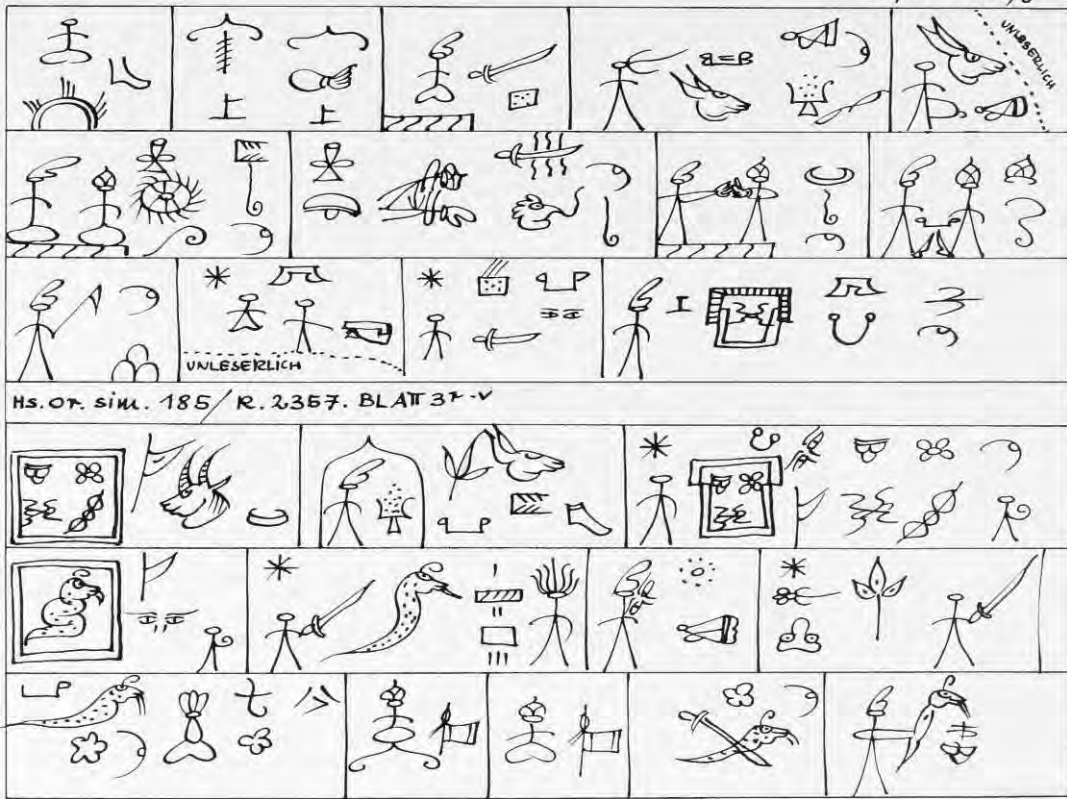 UNLESERLICH
UNLESERLICH
Hs. or. sim. 185/R. 2357. BLATT 3r-v